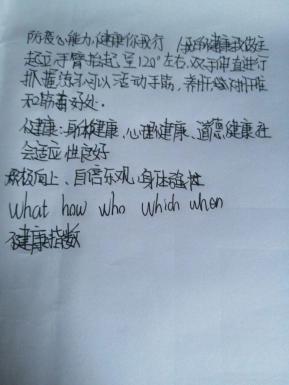 防疫心能力，健康你我行 人的健康我做主
起立，手臂抬起至120°左右，双手伸直进行
抓握，次可以活动手筋，养肝，对肝脏
和筋有好处。
健康：身体健康、心理健康、道德健康、社
会适应性良好
积极向上、自信乐观，身体
what how who which when
健康指数